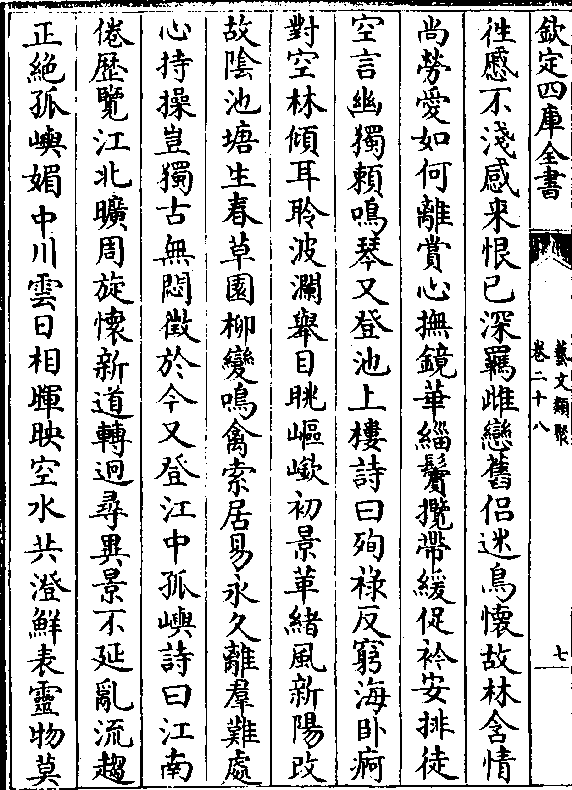 欽定四庫全書
藝文類聚
卷二十八
七
徃慼不淺感來恨已深羈雌戀舊侣迷鳥懷故林含情
尚勞愛如何離賞心撫鏡華緇鬢攬帶緩促衿安排徒
空言幽獨頼鳴琴又登池上樓詩曰殉祿反窮海卧痾
對空林傾耳聆波瀾舉目眺嶇嶔初景革緒風新陽改
故陰池塘生春草園柳變鳴禽索居易永久離羣難處
心持操豈獨古無悶徵於今又登江中孤嶼詩曰江南
倦歷覽江北曠周旋懷新道轉迥尋異景不延亂流趨
正絶孤嶼媚中川雲日相暉映空水共澄鮮表靈物莫